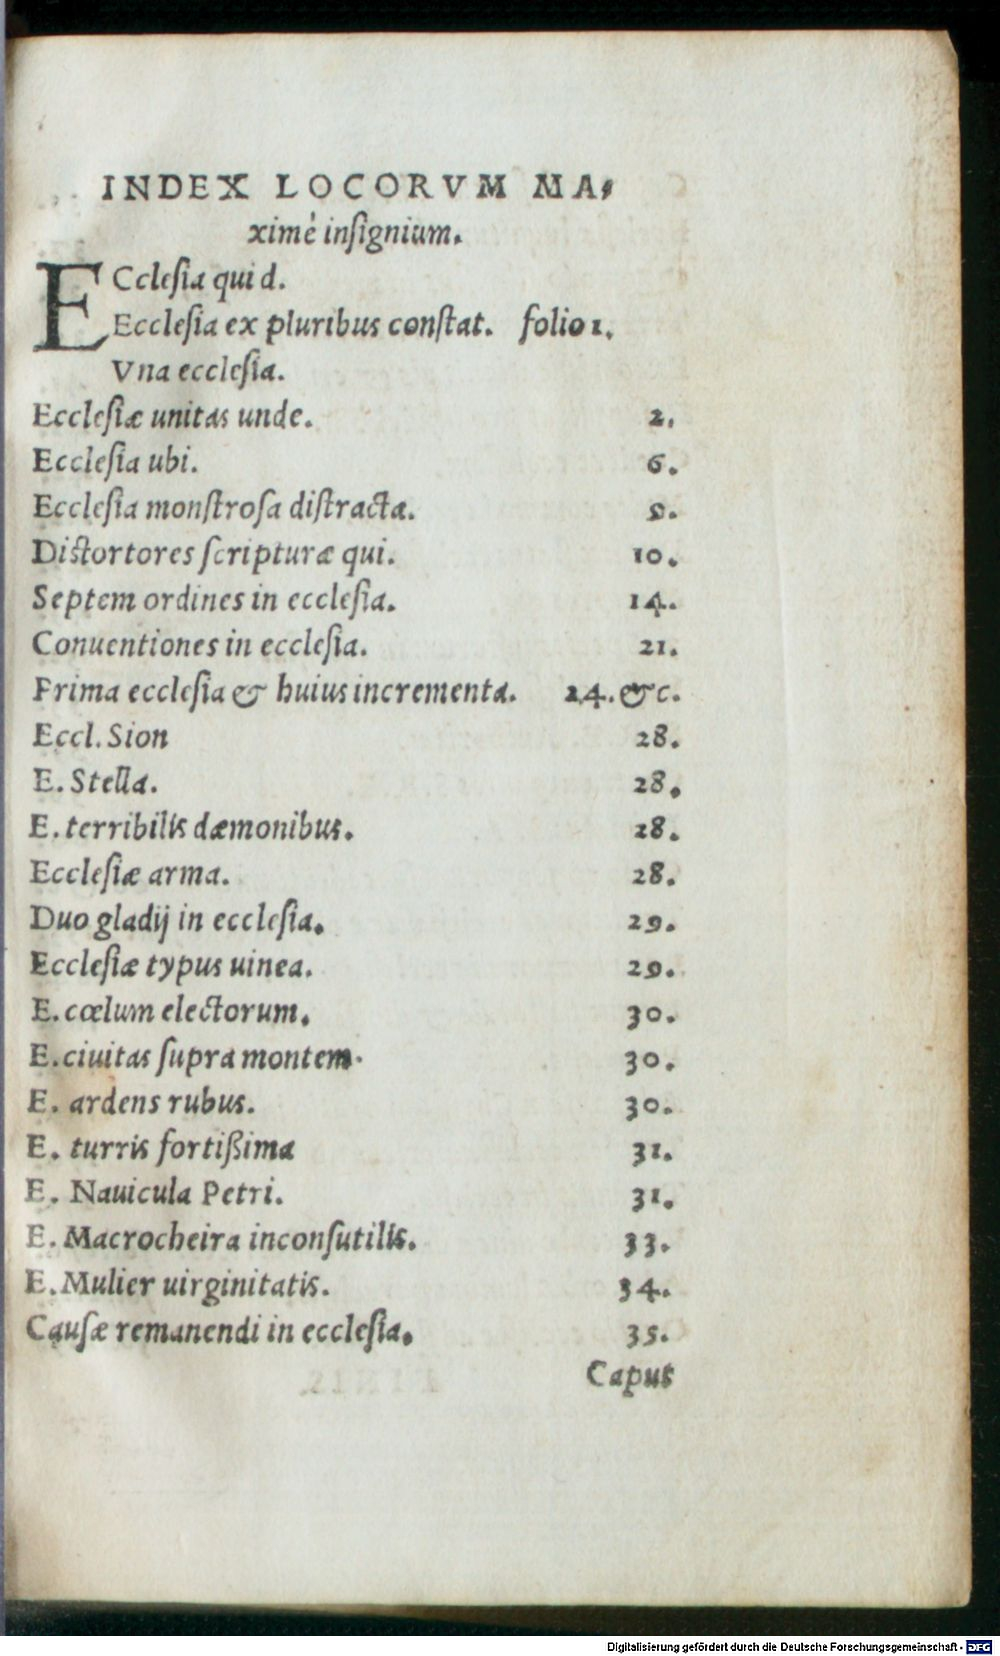 INDEX LOCORVM MA-
ximè insignium.
ECclesia quid.
Ecclesia ex pluribus constat. folio 1.
Vna ecclesia.
Ecclesiæ unitas unde. 2.
Ecclesia ubi. 6.
Ecclesia monstrosa distracta. 9.
Distortores scripturæ qui. 10.
Septem ordines in ecclesia. 14.
Conuentiones in ecclesia. 21.
Prima ecclesia & huius incrementa. 24.&c.
Eccl. Sion 28.
E. Stella. 28.
E. terribilis dæmonibus. 28.
Ecclesiæ arma. 28.
Duo gladij in ecclesia. 29.
Ecclesiæ typus uinea. 29.
E. cœlum electorum. 30.
E. ciuitas supra montem. 30.
E. ardens rubus. 30.
E. turris fortißima 31.
E. Nauicula Petri. 31.
E. Macrocheira inconsutilis. 33.
E. Mulier uirginitatis. 34.
Causæ remanendi in ecclesia. 35.
Caput
Digitalisierung gefördert durch die Deutsche Forschungsgemeinschaft - DFG